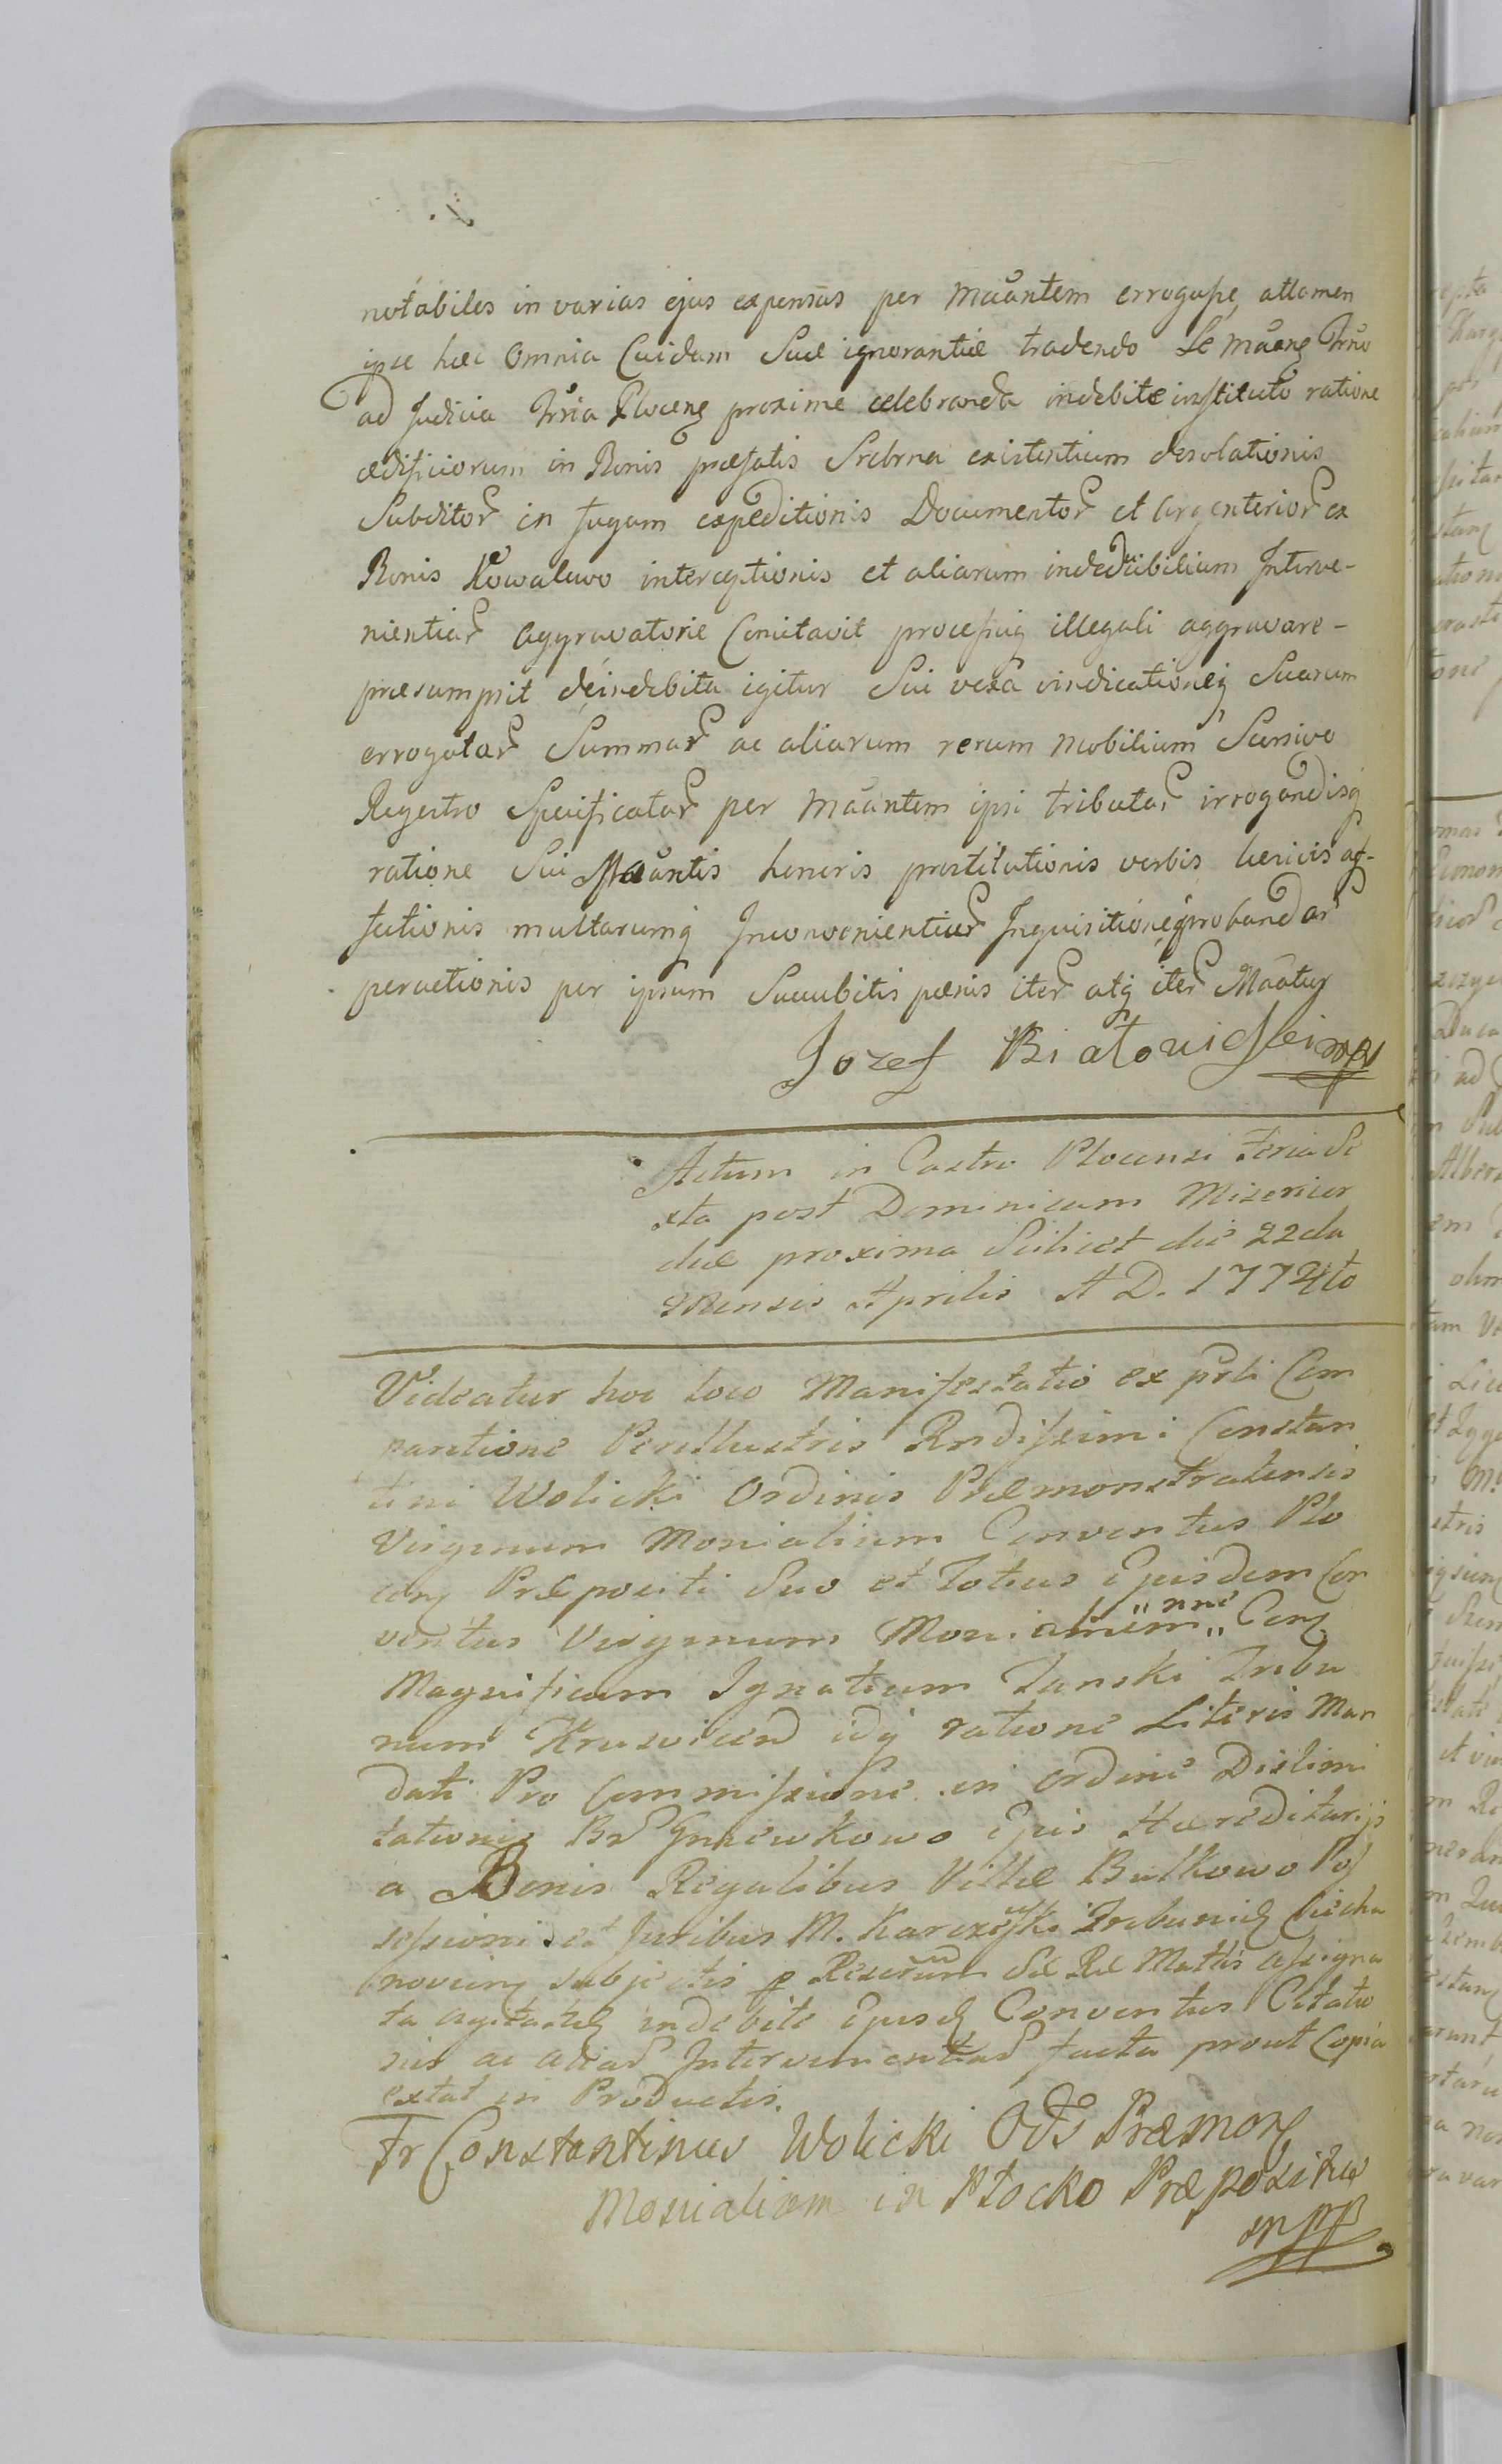 notabiles in varias ejus expensas per Mãantem errogasse, attamen
ipse hæc Omnia Cuidam Suæ ignorantiæ tradendo Se Mãanẽ
ad Judicia Plocenẽ proxime celebranda indebite instituto ratione
ædificiorum in Bonis præfatis Srebrna existentium desolationis
Subditor in fugam expeditionis Documentor et argenterior ex
Bonis Kowalewo interceptionis et aliarum indeducibilium Interve-
nientiar aggravatorie Comitavit processuq illegali aggravare-
præsumpsit de indebita igitur Sui vexa vindicationeq Suarum
errogatar Summar ac aliarum rerum Mobilium Sursivo
Regestro Specificatar per Mãantem ipsi tributar irrogandisq
ratione Sui Mãantis honoris prostitutionis verbis læsivis af-
fectionis multarumq Inconvenientiar Inquisitioneq probandar
peractionis per ipsum Succubitis pœnis iter atq iter Mãatur
Jozef Białowieski mp
Actum in Castro Plocensi Feria Se
xta post Dominicam Misericor
diæ proxima Scilicet die 22da
Mensis Aprilis A D. 1774to
Videatur hoc loco Manifestatio ex prsti Com
paritione Perillustris Rndissimi Constan
tini Wolicki Ordinis Præmonstratensis
Virginum Monialium Conventus Plo
cenẽ Præpositi Suo et Totius Ejusdem Con
ventus Virginum Monialium „ nne „ Conẽ
Magnificum Ignatium Zanski Tribu
num Kruswicen idq ratione Literis Man
dati Pro Commissione in ordine Dislimi
tationis Br Gniewkowo Ejus Hæreditarijs
a Bonis Regalibus Villæ Bulkowo Pos
sessioni et Juribus M. Karczewski Tribunid Ciecha
novienẽ subjectis p Rescrum Sæ Ræ Mattis assigna
ta agitatæq indebite Ejusd Conventus Citatio
nis ac aliar Intervenientiar facta prout Copia
extat in Productis.
Fr Constantinus Wolicki Ods Præmonẽ
Monialium in Płocko Præpositus
mpp